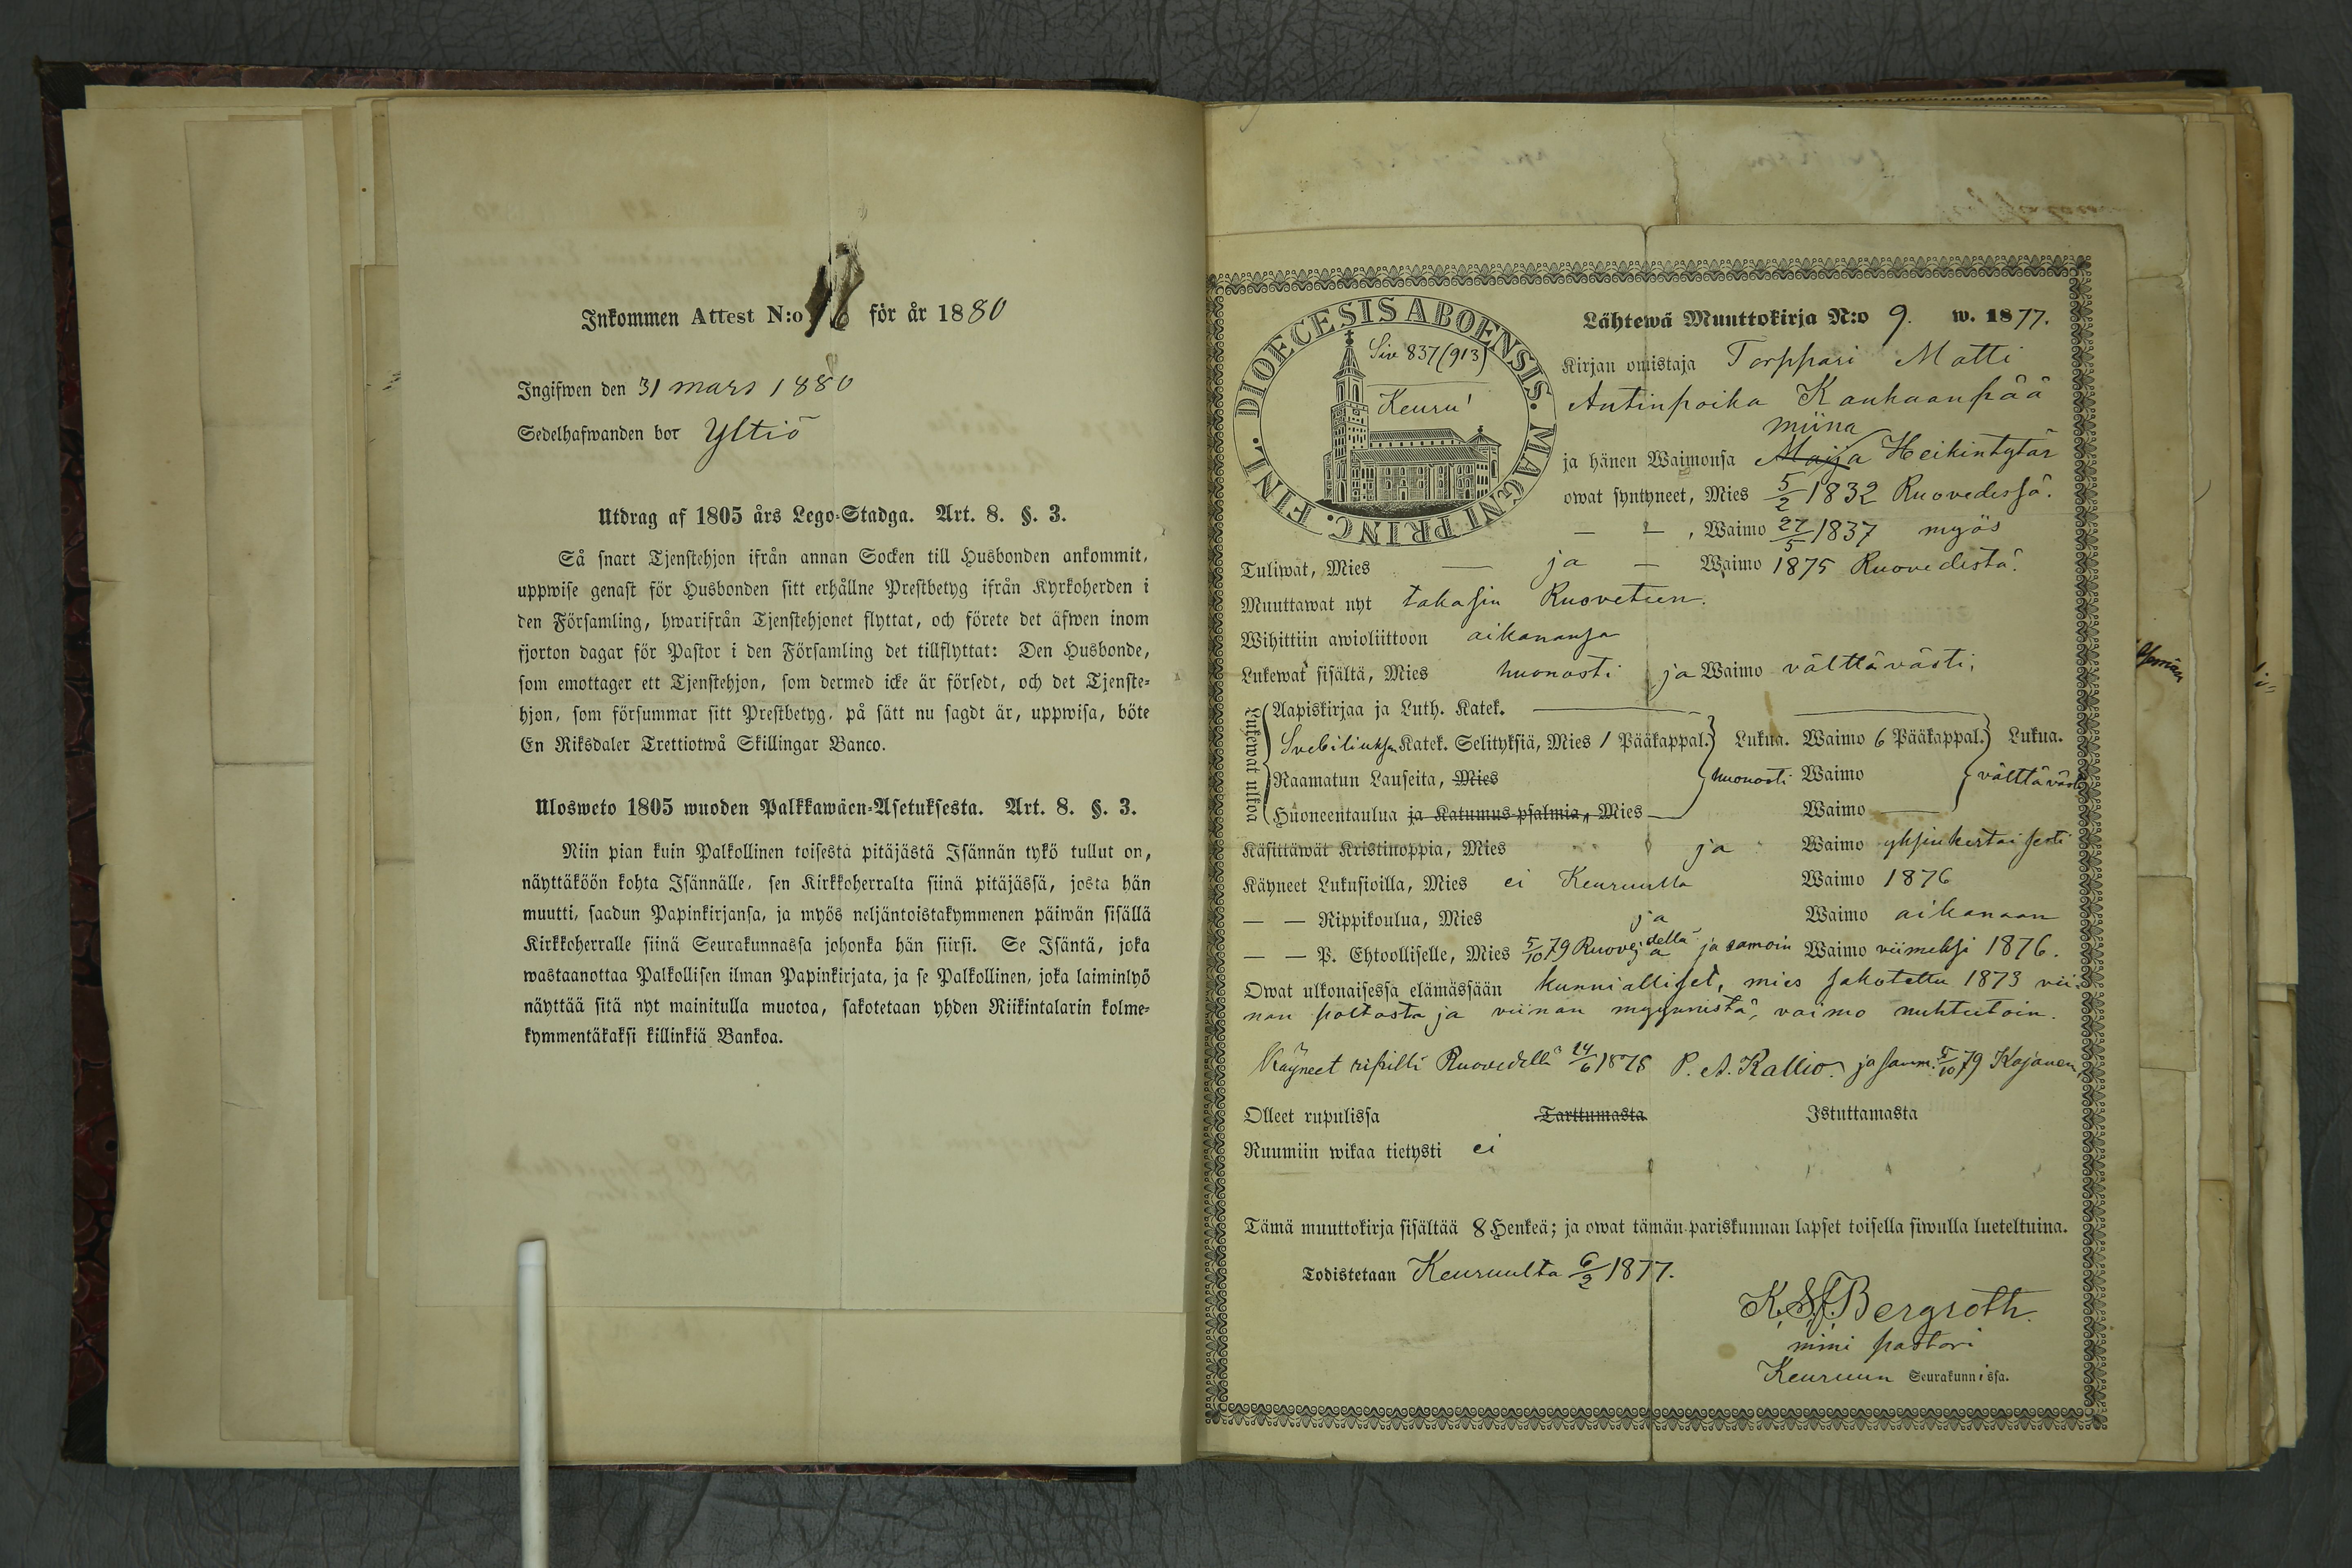 Inkommen Attest N:o för år 1880
Ingifwen den 31 mars 1880
Sedelhafwanden bor Yltiö
Utdrag af 1805 års Lego-Stadga. Art. 8. §. 3.
Så snart Tjenstehjon ifrån annan Socken till Husbonden ankommit,
uppwise genast för Husbonden sitt erhållne Prestbetyg ifrån Kyrkoherden i
den Församling, hwarifrån Tjenstehjonet flyttat, och förete det äfwen inom
fjorton dagar för Pastor i den Församling det tillflyttat: Den Husbonde,
som emottager ett Tjenstehjon, som dermed icke är försedt, och det Tjenste-
hjon, som försummar sitt Prestbetyg, på sätt nu sagdt är, uppwisa, böte
En Riksdaler Trettiotwå Skillingar Banco.
Ulosweto 1805 wuoden Palkkawäen-Asetuksesta. Art. 8. §. 3.
Niin pian kuin Palkollinen toisesta pitäjästä Isännän tykö tullut on,
näyttäköön kohta Isännälle, sen Kirkkoherralta siinä pitäjässä, josta hän
muutti, saadun Papinkirjansa, ja myös neljäntoistakymmenen päiwän sisällä
Kirkkoherralle siinä Seurakunnassa johonka hän siirsi. Se Isäntä, joka
wastaanottaa Palkollisen ilman Papinkirjata, ja se Palkollinen, joka laiminlyö
näyttää sitä nyt mainitulla muotoa, sakotetaan yhden Riikintalarin kolme-
kymmentäkaksi killinkiä Bankoa.
DIOECESIS ABOENSIS. MAGNI PRINC. FINL.
Siv 837 (913)
Keuru
Lähtewä Muuttokirja N:o 9. w. 1877.
Kirjan omistaja Torppari Matti
Antinpoika Kauhaanpää
miina
ja hänen Waimonsa Maija Heikintytär
owat syntyneet, Mies 5/2 1832 Ruovedessä.
— — , Waimo 27/5 1837 myös
Tuliwat, Mies — ja — Waimo 1875 Ruovedestä.
Muuttawat nyt takasin Ruoveteen.
Wihittiin awioliittoon aikanansa
Lukewat sisältä, Mies huonosti ja Waimo välttävästi,
Lukewat ulkoa
Aapiskirjaa ja Luth. Katek.
Svebiliuksen Katek. Selityksiä, Mies 1 Pääkappal. Lukua. Waimo 6 Pääkappal. Lukua.
Raamatun Lauseita, Mies huonosti Waimo välttäväst
Huoneentaulua ja Katumus-psalmia, Mies — Waimo —
Käsittäwät Kristinoppia, Mies ja Waimo yksinkertaisesti
Käyneet Lukusioilla, Mies ei Keuruulla Waimo 1876
— — Rippikoulua, Mies ja Waimo aikanaan
— — P. Ehtoolliselle, Mies 5/10 79 Ruovedella ja samoin Waimo viimeksi 1876.
Owat ulkonaisessa elämässään kunnialliset, mies sakotettu 1873 vii-
nan poltosta ja viinan myynnistä, vaimo nuhteetoin.
Käyneet ripillä Ruovedellä 24/6 1878 P. A. Kallio. ja samm. 5/10 79 Kajanen,
Olleet rupulissa Tarttumasta Istuttamasta
Ruumiin wikaa tietysti ei
Tämä muuttokirja sisältää 8 Henkeä; ja owat tämän pariskunnan lapset toisella siwulla lueteltuina.
Todistetaan Keuruulta 6/2 1877.
Bergroth.
pastori
Keuruun Seurakunnissa.